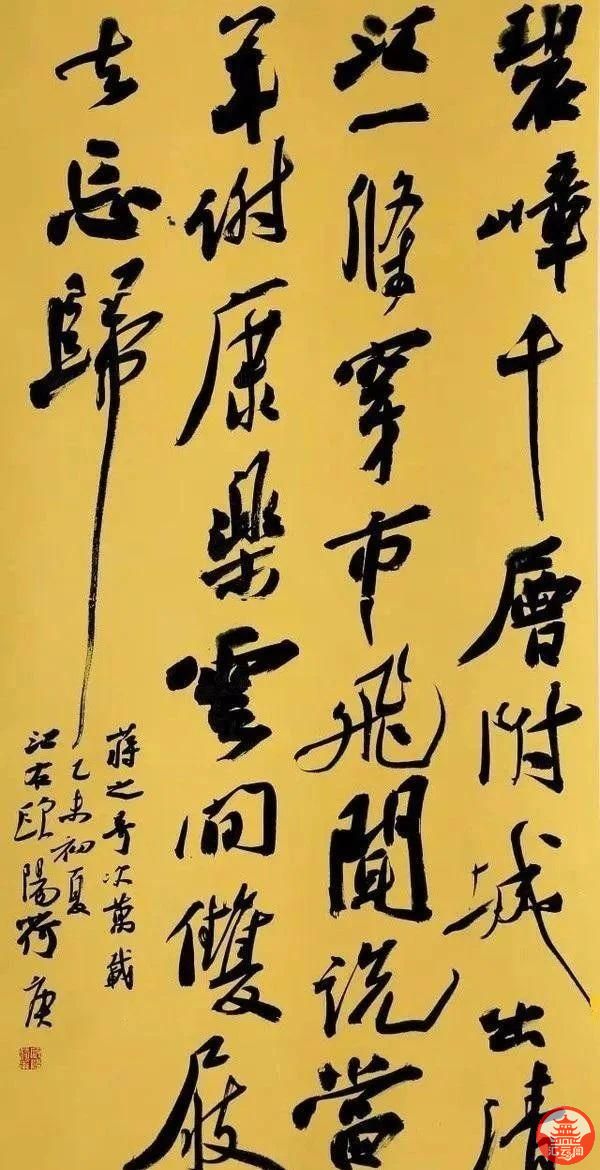 碧嶂千層附城出清
江一條穿市飛聞説當
年谢康樂雲间雙屐
去忘歸
蒋之奇次萬載
乙未初夏
江右歐陽荷庚
汇云阁